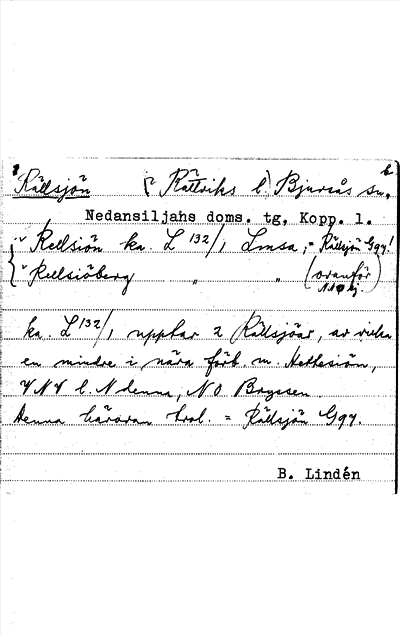 Rällsjön (? Rättviks l.) Bjursås sn.
Nedansiljahs doms. tg, Kopp. l.
"Rellsiön ka. L 132/1 Lmsa, = Rällsjön Ggy!
"Rellsiöberg " " (ovanför
ka. L 132/1 upptar 2 Rällsjöar, av vilka
en mindre i nära förb. m. Hettesiön,
VNV l. N denna, NO Bryssen.
Denna häröran trol. = Rällsjön Ggy.
B. Lindén